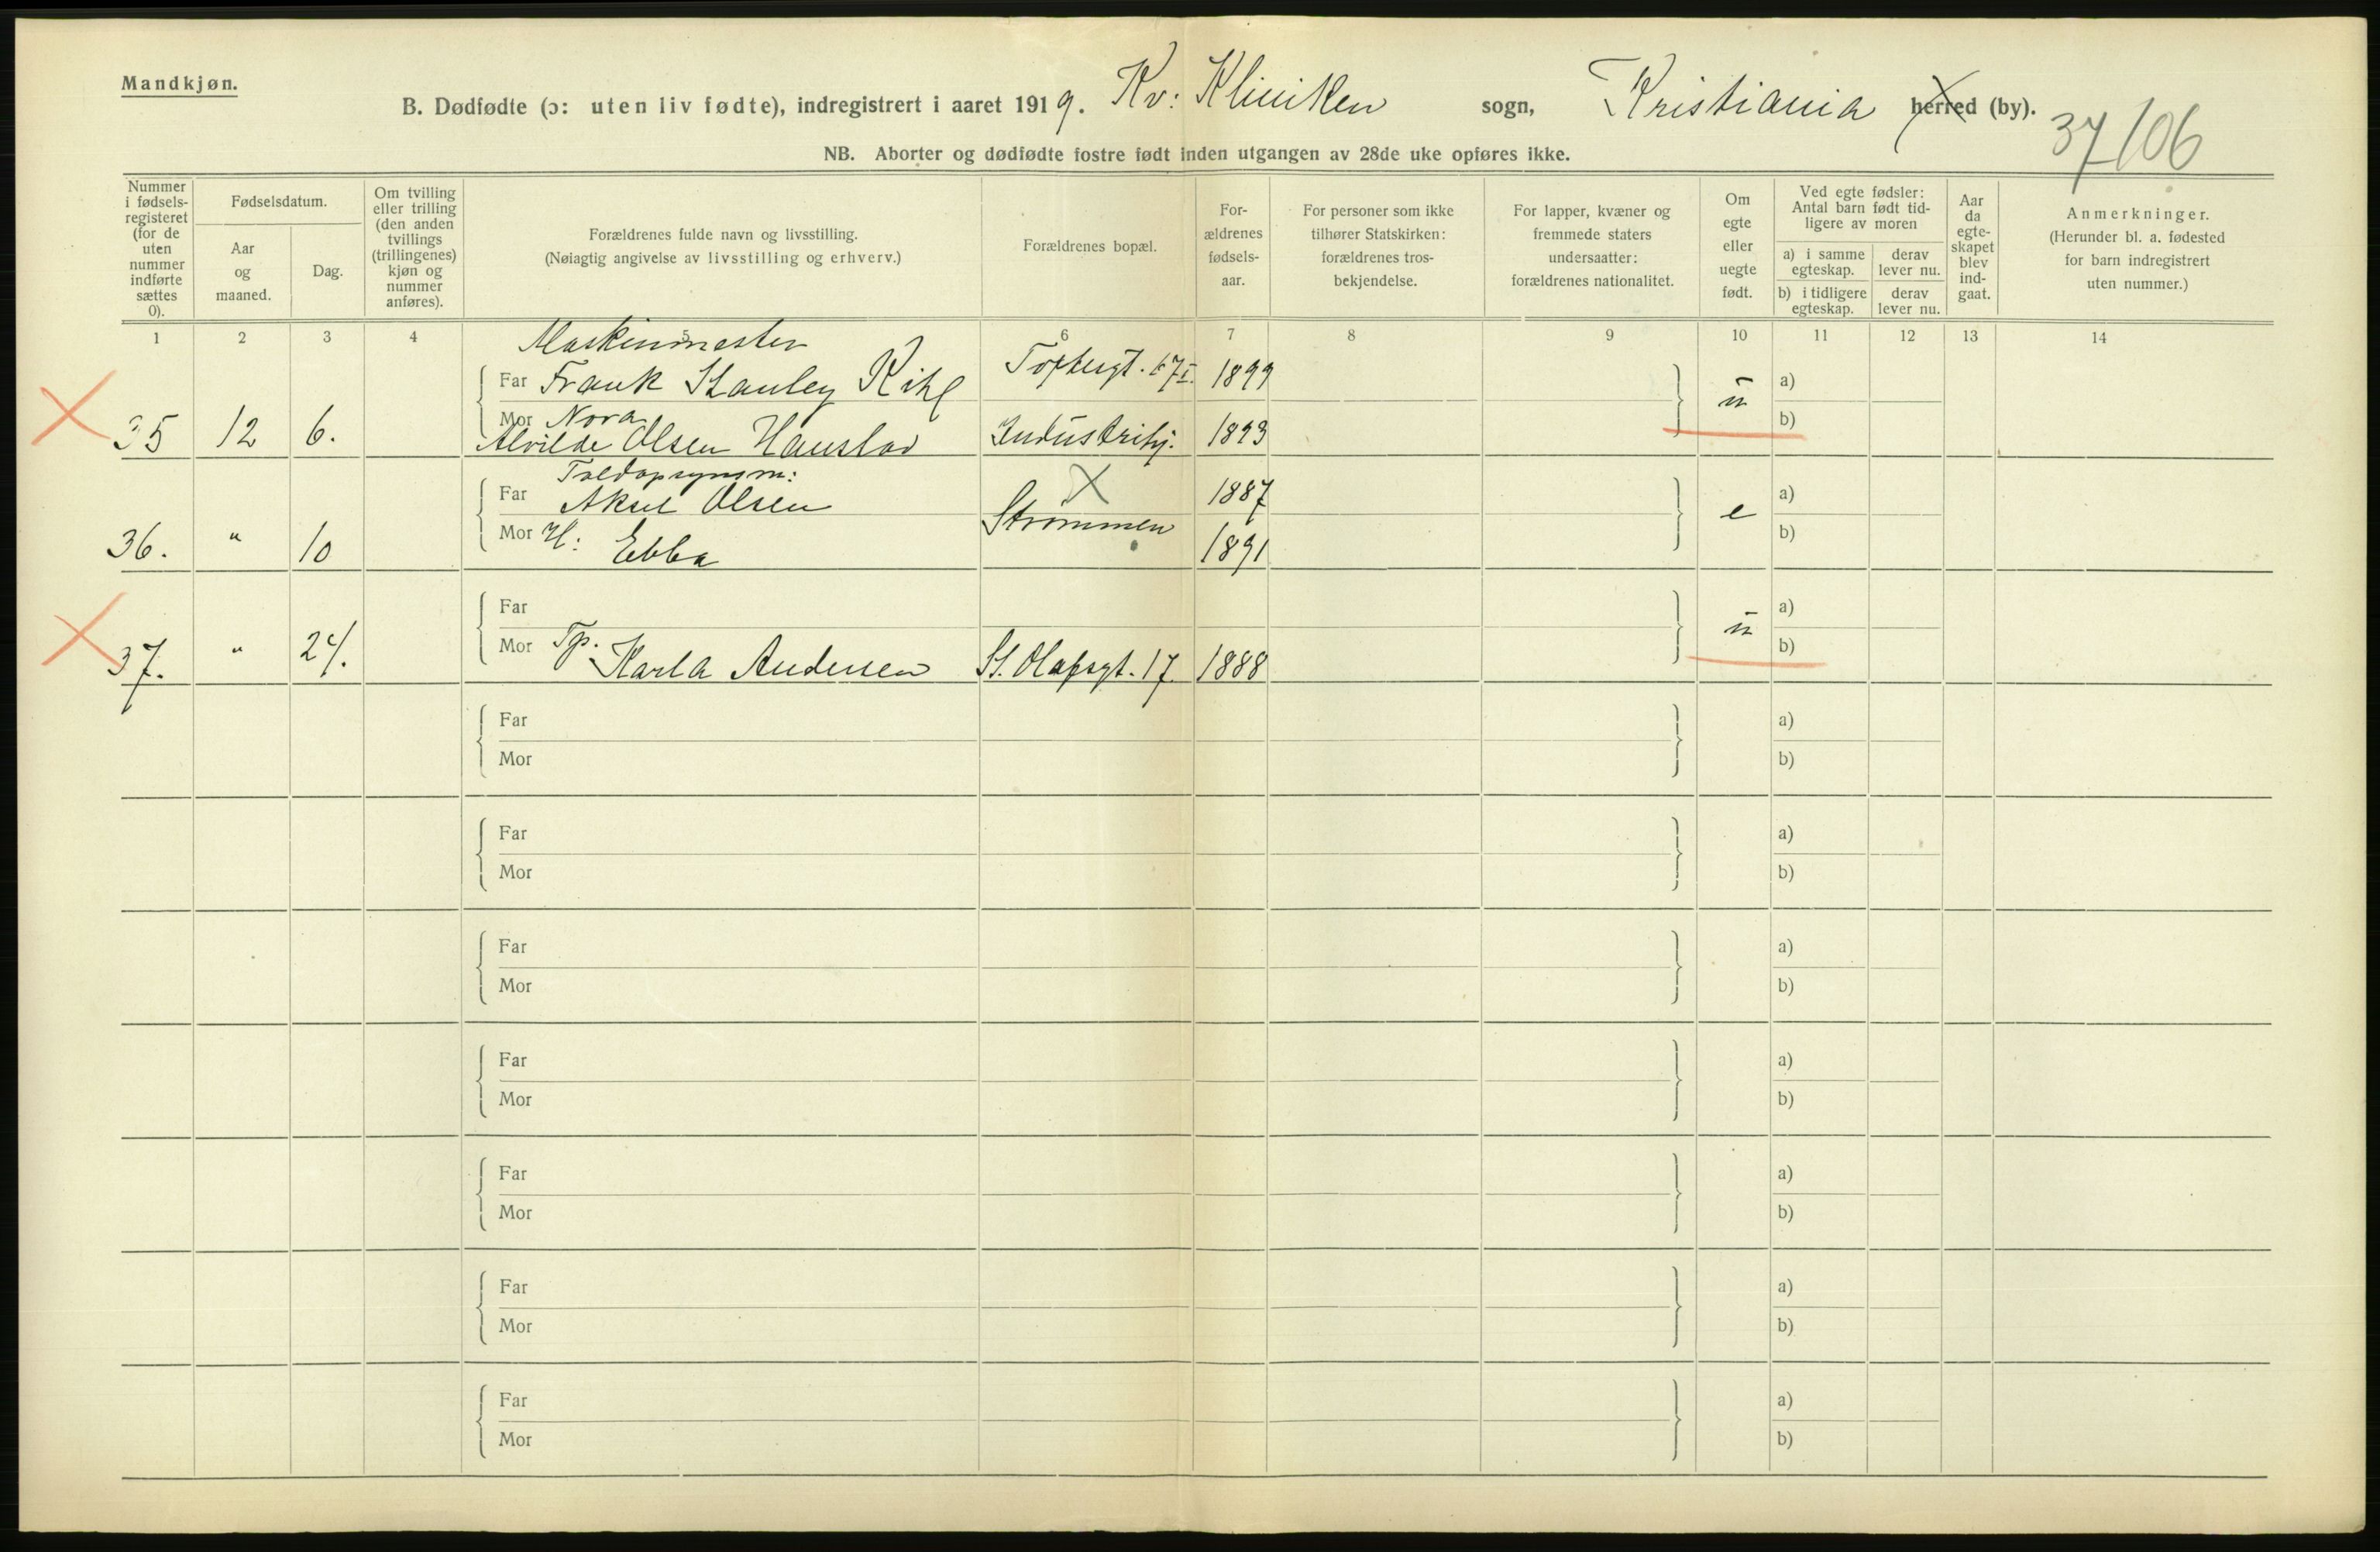 Mandkjøn.
B. Dødfødte (ɔ: uten liv fødte), indregistrert i aaret 1919. Kv: Kliniken sogn, Kristiania herred (by).
37/106
NB. Aborter og dødfødte fostre født inden utgangen av 28de uke opføres ikke.
Nummer i fødsels-registeret (for de uten nummer indførte sættes 0).
Fødselsdatum.
Aar og maaned.
Dag.
Om tvilling eller trilling (den anden tvillings (trillingenes) kjøn og nummer anføres).
Forældrenes fulde navn og livsstilling.
(Nøiagtig angivelse av livsstilling og erhverv.)
Forældrenes bopæl.
For-ældrenes fødsels-aar.
For personer som ikke tilhører Statskirken: forældrenes tros-bekjendelse.
For lapper, kvæner og fremmede staters undersaatter: forældrenes nationalitet.
Om egte eller uegte født.
Ved egte fødsler: Antal barn født tid-ligere av moren
a) i samme egteskap.
derav lever nu.
b) i tidligere egteskap.
derav lever nu.
Aar da egte-skapet blev ind-gaat.
Anmerkninger.
(Herunder bl. a. fødested for barn indregistrert uten nummer.)
1 2 3 4 5 6 7 8 9 10 11 12 13 14
Maskinmester
Far Frank Stanley Kihl Toftesgt. 67 I. 1899 a)
35 12 6. Mor Nora ū b)
Alvilde Olsen Hauslad Industribj. 1893
Toldopsynsm:
Far Aksel Olsen X 1887 e a)
36. " 10 Mor H: Ebba Strømmen 1891 b)
Far a)
37. " 24. Mor Tp. Karla Andersen St. Olafsgt. 17. 1888 ū b)
Far a)
Mor b)
Far a)
Mor b)
Far a)
Mor b)
Far a)
Mor b)
Far a)
Mor b)
Far a)
Mor b)
Far a)
Mor b)